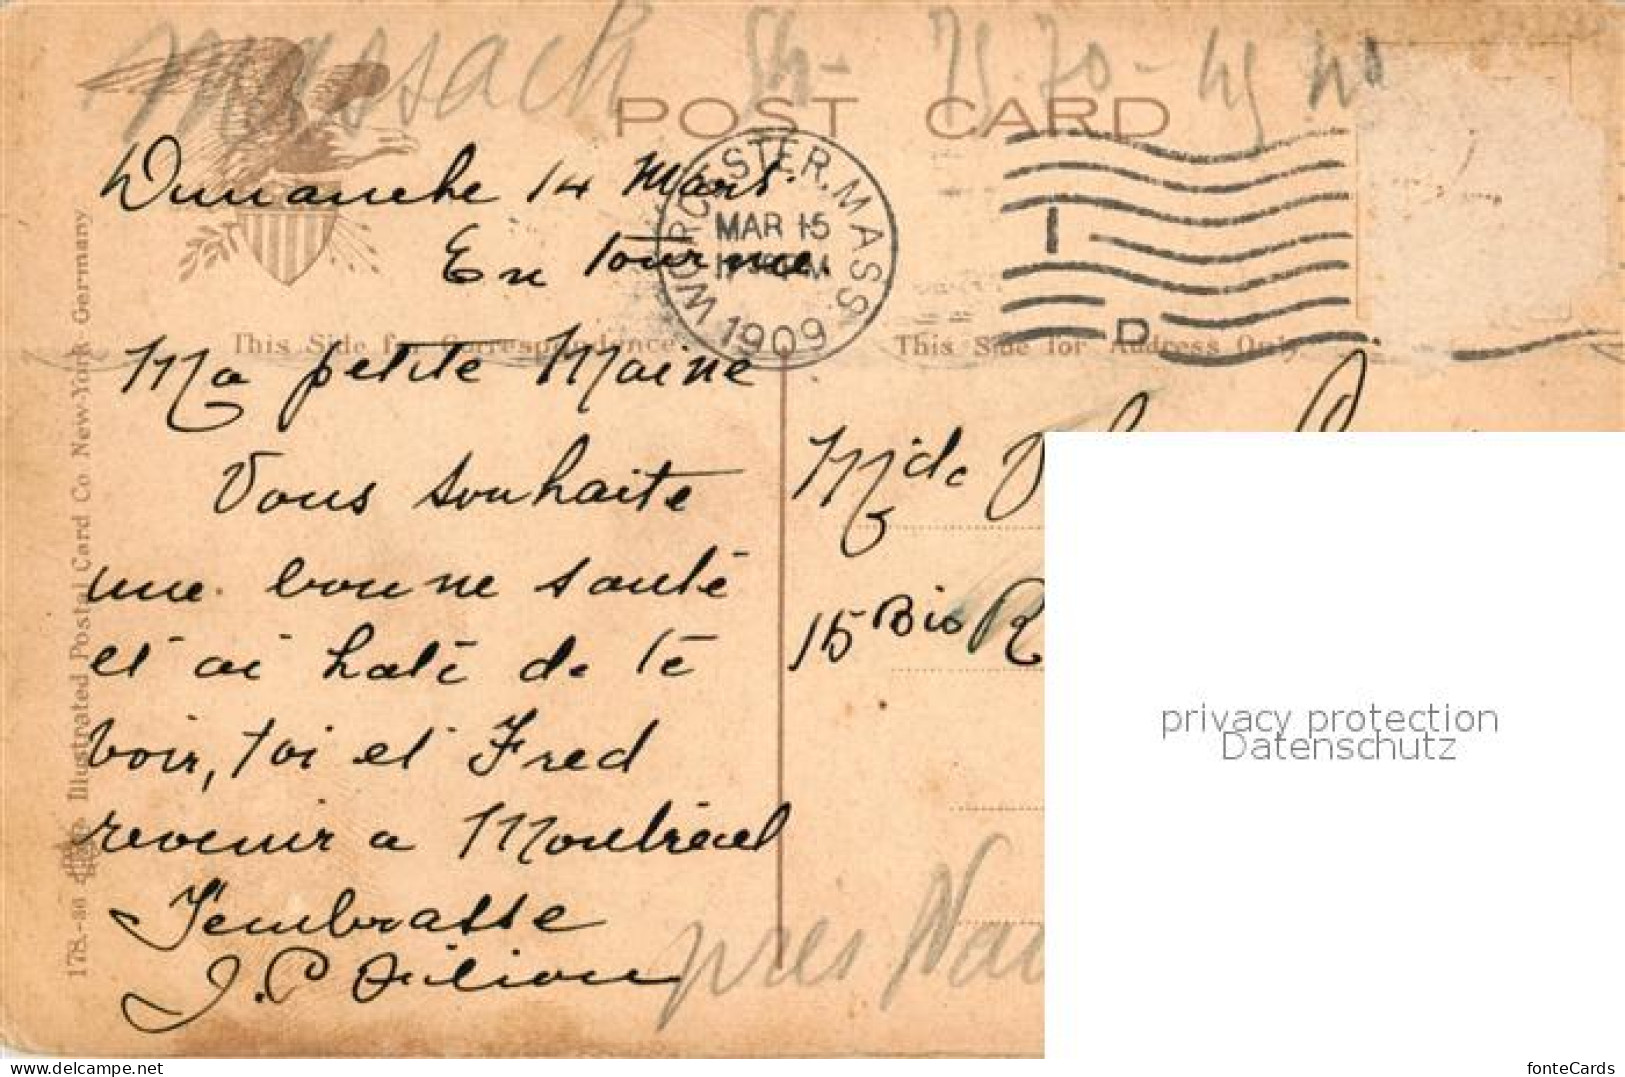 Massach
POST CARD
WORCESTER, MASS.
MAR 15
1909
D
Dimanche 14 Mars
En tournee.
This Side for Correspondence
This Side for Address Only
Ma petite Maine
Vous souhaite
une bonne santé
et ai haté de te
voir, toi et Fred
revenir a Montréal
J'embrasse
J. P. Filion
178.-86 Illustrated Postal Card Co. New-York - Germany
15 Bis R
près
privacy protection
Datenschutz
https://www.delcampe.net
fonteCards